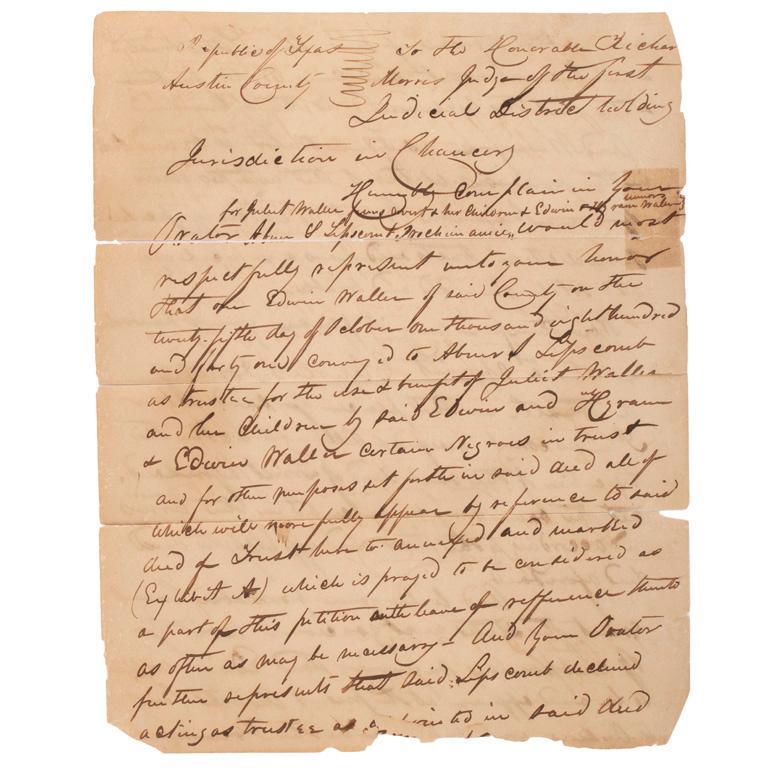 Republic of Texas To the Honorable Richar
Austin County Morris Judge of the first
Judicial District holding
Jurisdiction in Chancery
Humbly Complain in Your
for Juliet Waller & her Children & Edwin minors
Orator Abner S Lipscomb Prochein amie would most
respectfully represent unto your honor
that one Edwin Waller of said County on the
twenty-fifth day of October one thousand eight hundred
and forty one conveyed to Abner S Lipscomb
as trustee for the use & benefit of Juliet Waller
and her Children by said Edwin and Hyram
& Edwin Waller certain Negroes in trust
and for other purposes set forth in said deed all of
which will more fully appear by reference to said
deed of Trust here to annexed and marked
(Exhibit A) which is prayed to be considered as
a part of this petition with leave of refference thereto
as often as may be necessary - And Your Orator
further represents that said Lipscomb declined
acting as trustee as in said deed